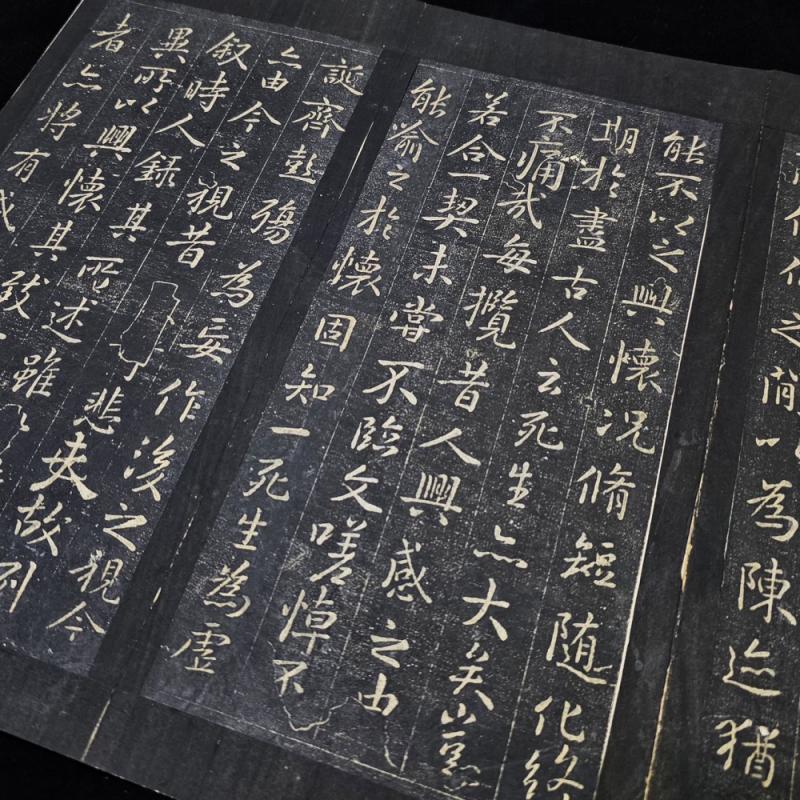 之閒以為陳迹猶
能不以之興懷況脩短隨化終
期於盡古人云死生亦大矣豈
不痛哉每攬昔人興感之由
若合一契未嘗不臨文嗟悼不
能喻之於懷固知一死生為虛
誕齊彭殤為妄作後之視今
亦由今之視昔悲夫故列
叙時人錄其所述雖
異所以興懷其致
者亦將有感